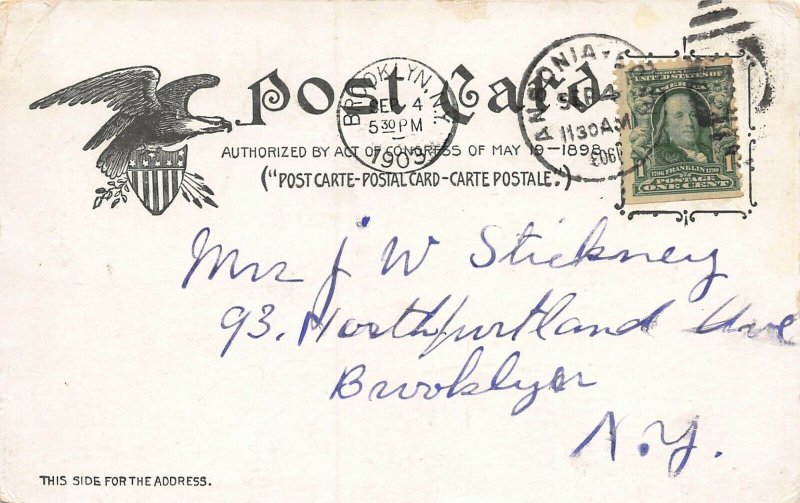 Post Card
AUTHORIZED BY ACT OF CONGRESS OF MAY 19-1898.
("POST CARTE-POSTAL CARD-CARTE POSTALE.")
BROOKLYN, N.Y.
SEP 4
5 30 PM
1903
ANSONIA
SEP 4
11 30 A.M.
1903
UNITED STATES OF
AMERICA
1706 FRANKLIN 1790
1 POSTAGE 1
ONE CENT
Mrs J W Stickney
93. North portland Ave
Brooklyn
N.Y.
THIS SIDE FOR THE ADDRESS.